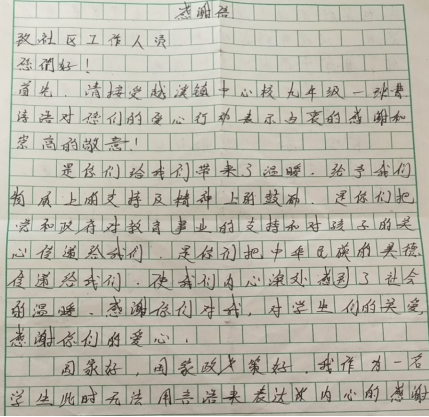 感谢信
致社区工作人员
你們好！
首先，请接受越溪镇中心校九年级一班
语洛对你们的爱心行动表示由衷的感谢和
崇高的敬意！
是你们给我们带来了温暖，给予我们
物质上的支持及精神上的鼓励，是你们把
党和政府对教育事业的支持和对孩子的关
心传递给我们，是你们把中华民族的美德
传递给我们，使我们内心深处感到了社会
的温暖，感谢你们对我，对学生们的关爱，
感谢你们的爱心，
国家好，国家政策好，我作为一名
学生此时无法用言语来表达我内心的感谢